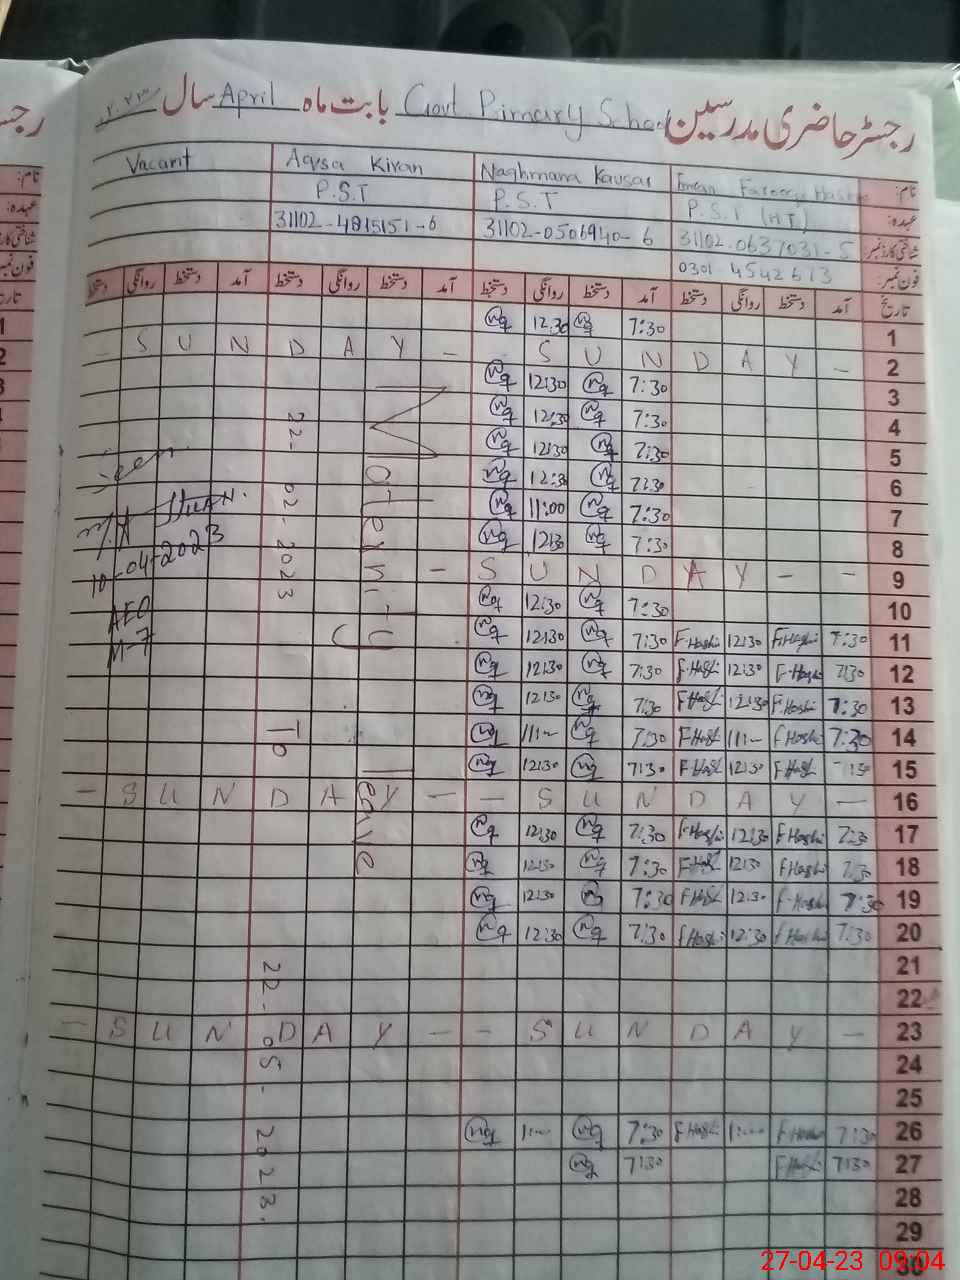 رجسٹر حاضری مدرسین Govt. Pirmary School بابت ماہ April سال ۲۰۲۳
نام: Naghmana Kausar Aqsa Kiran Vacant
عہدہ: P.S.T (H.T) P.S.T P.S.T
شناختی کارڈ نمبر 31102-0637031-5 31102-0506940-6 31102-4815151-6
فون نمبر: 0301-4542613
تاریخ آمد دستخط روانگی دستخط آمد دستخط روانگی دستخط آمد دستخط روانگی دستخط آمد دستخط روانگی دستخط
1 7:30 nq 12:30 nq
2 - S U N D A Y - S U N D A Y -
3 7:30 nq 12:30 nq
4 7:30 nq 12:30 nq
5 7:30 nq 12:30 nq
6 7:30 nq 12:30 nq
7 7:30 nq 11:00 nq
8 7:30 nq 12:30 nq
9 - S U N D A Y - -
10 7:30 nq 12:30 nq
11 7:30 F.Hashi 12:30 F.Hashi 7:30 nq 12:30 nq
12 7:30 F.Hashi 12:30 F.Hashi 7:30 nq 12:30 nq
13 7:30 F.Hashi 12:30 F.Hashi 7:30 nq 12:30 nq
14 7:30 F.Hashi 11:- F.Hashi 7:30 nq 11:- nq
15 7:30 F.Hashi 12:30 F.Hashi 7:30 nq 12:30 nq
16 - S U N D A Y - - S U N D A Y -
17 7:30 F.Hashi 12:30 F.Hashi 7:30 nq 12:30 nq
18 7:30 F.Hashi 12:30 F.Hashi 7:30 nq 12:30 nq
19 7:30 F.Hashi 12:30 F.Hashi 7:30 nq 12:30 nq
20 7:30 F.Hashi 12:30 F.Hashi 7:30 nq 12:30 nq
21
22
23 - S U N D A Y - - S U N D A Y -
24
25
26 7:30 F.Hashi 1:- F.Hashi 7:30 nq 1:- nq
27 7:30 F.Hashi 7:30 nq
28
29
30
Maternity Leave
22-02-2023 To 22-05-2023.
Seen
10-04-2023
AEO
M-7
27-04-23 09:04